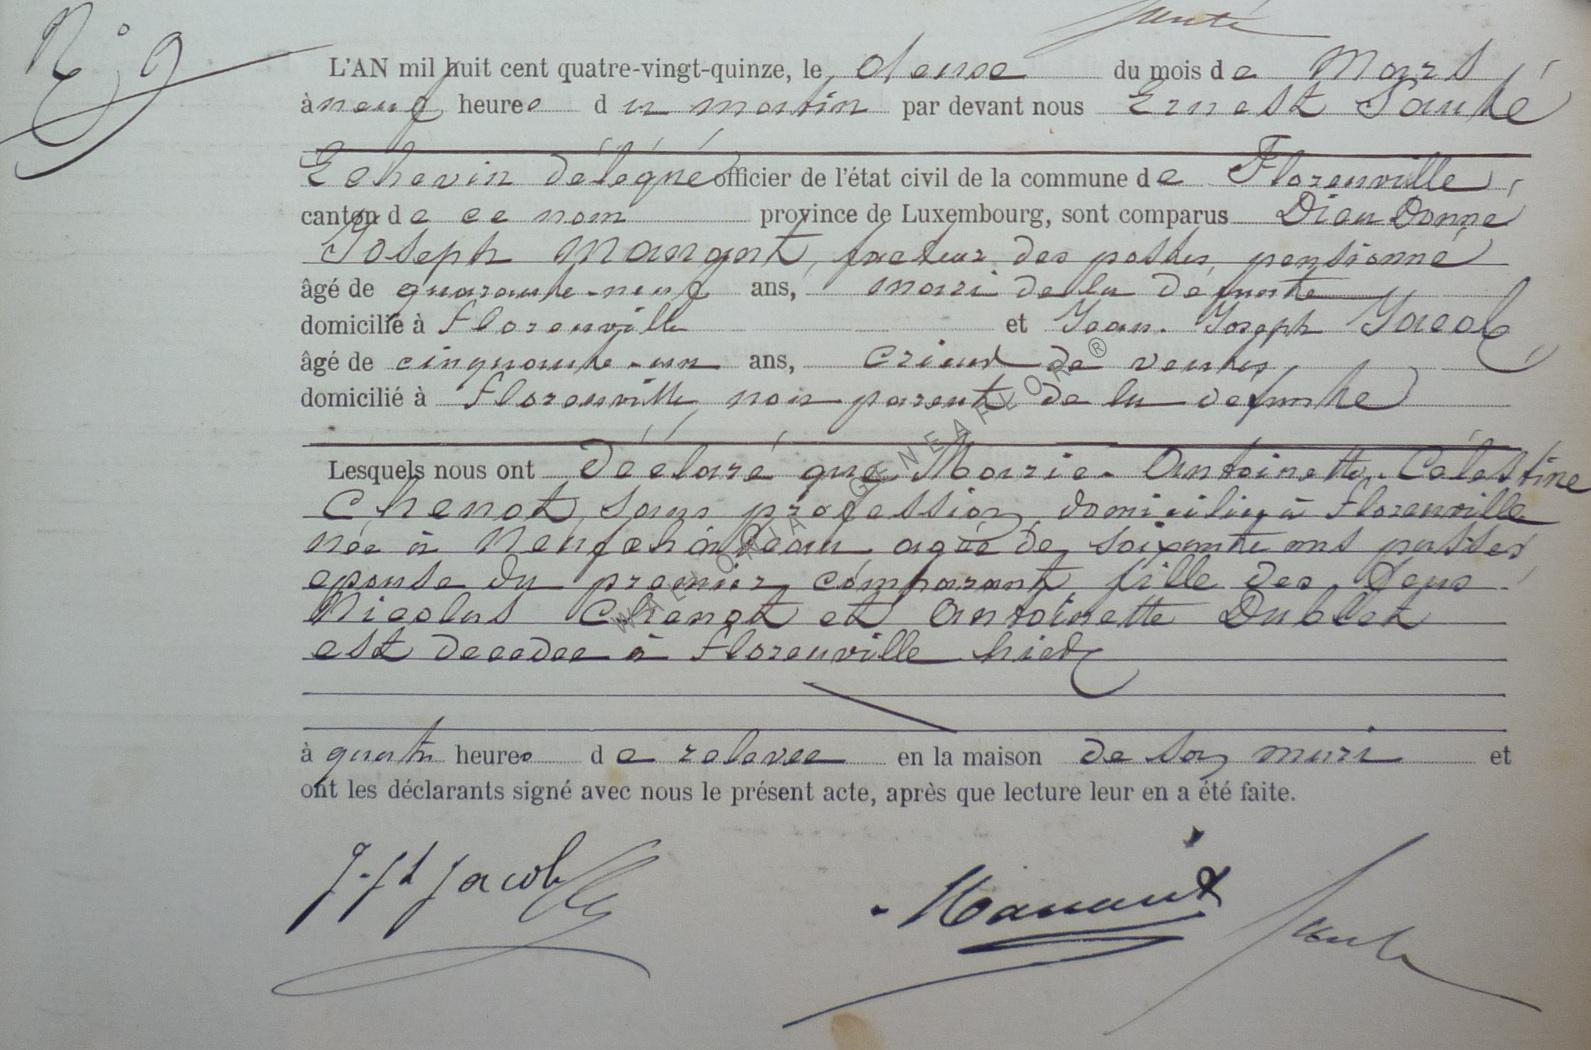 Santé
N° 9
L'AN mil huit cent quatre-vingt-quinze, le deuxe du mois de Mars
à neuf heures du matin par devant nous Ernest Santé
Echevin délégué officier de l'état civil de la commune de Florenville,
canton de ce nom province de Luxembourg, sont comparus Dieudonné
Joseph facteur des postes, pensionné
âgé de quarante-neuf ans, mari de la défunte
domicilié à Florenville et Jean-Joseph Jacob,
âgé de cinquante-un ans, crieur de ventes,
domicilié à Florenville, non parent de la defunte
Lesquels nous ont déclaré que Marie-Antoinette-Célestine
Chenot, sans profession, domiciliée à Florenville
née à Neufchâteau, agée de soixante ans passés,
epouse du premier comparant, fille des
Nicolas Chenot et Antoinette Dublet
est decedee à Florenville hier
à quatre heures de relevee en la maison de son mari et
ont les déclarants signé avec nous le présent acte, après que lecture leur en a été faite.
J-Jh Jacob Santé
WALLONIA GENEAFLOR ®